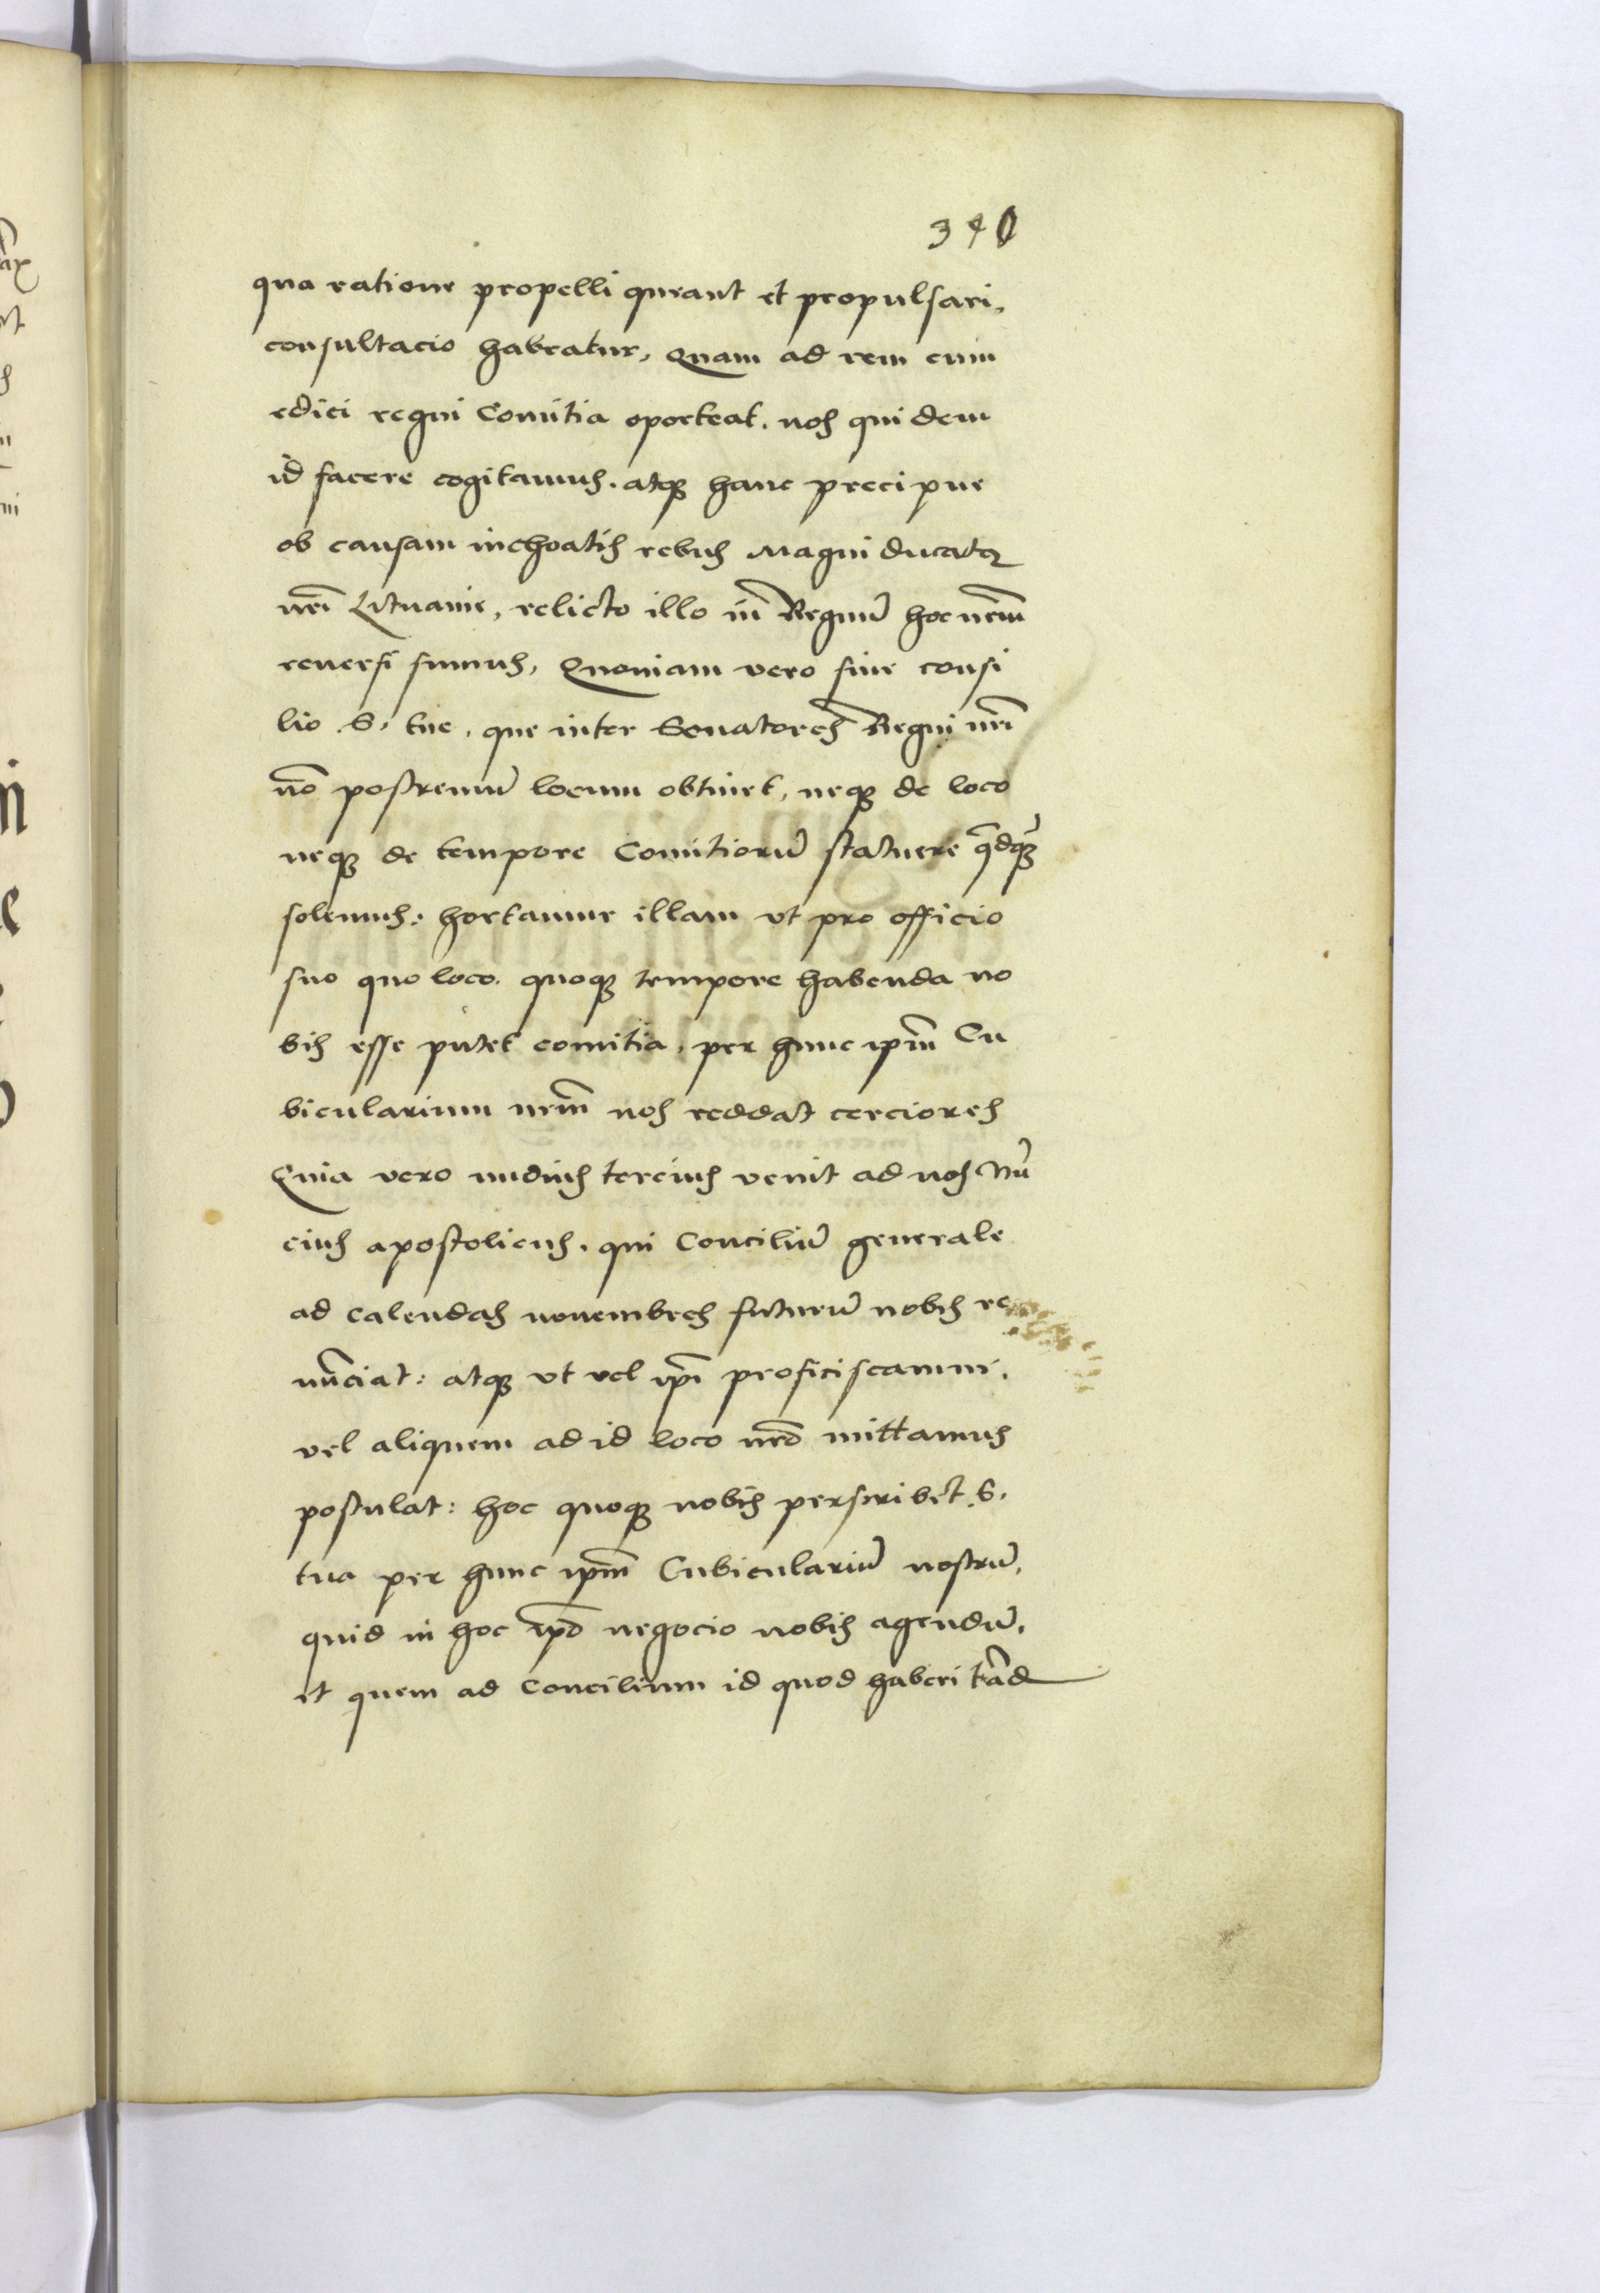 340
qua ratione propelli queant et propulsari,
consultacio habeatur, Quam ad rem cum
edici regni Comitia oporteat. nos qui dem
id facere cogitamus. atqꝫ hanc precipue
ob causam inchoatis rebus Magni ducatꝯ
nr̃i Lituanie, relicto illo in Regnũ hoc nr̃m
reuersi sumus, Quoniam vero sine consi
lio .S. tue, que inter Senatores Regni nr̃i
nõ postremũ locum obtinet, neqꝫ de loco
neqꝫ de tempore Comitiorũ statuere q̃dqꝫ̃
solemus: hortamur illam vt pro officio
suo quo loco. quoqꝫ tempore habenda no
bis esse putet comitia, per hunc ip̃m Cu
bicularium nr̃m nos reddat cerciores
Quia vero nudius tercius venit ad nos Nũ
cius apostolicus, qui Conciliũ generale
ad calendas nouembres futurũ nobis re
nũciat: atqꝫ vt vel ip̃i proficiscamur,
vel aliquem ad id loco nr̃o mittamus
postulat: hoc quoqꝫ nobis perscribet .S.
tua per hunc ip̃m Cubiculariũ nostrũ,
quid in hoc ip̃o negocio nobis agendũ,
et quem ad Concilium id quod haberi tãd